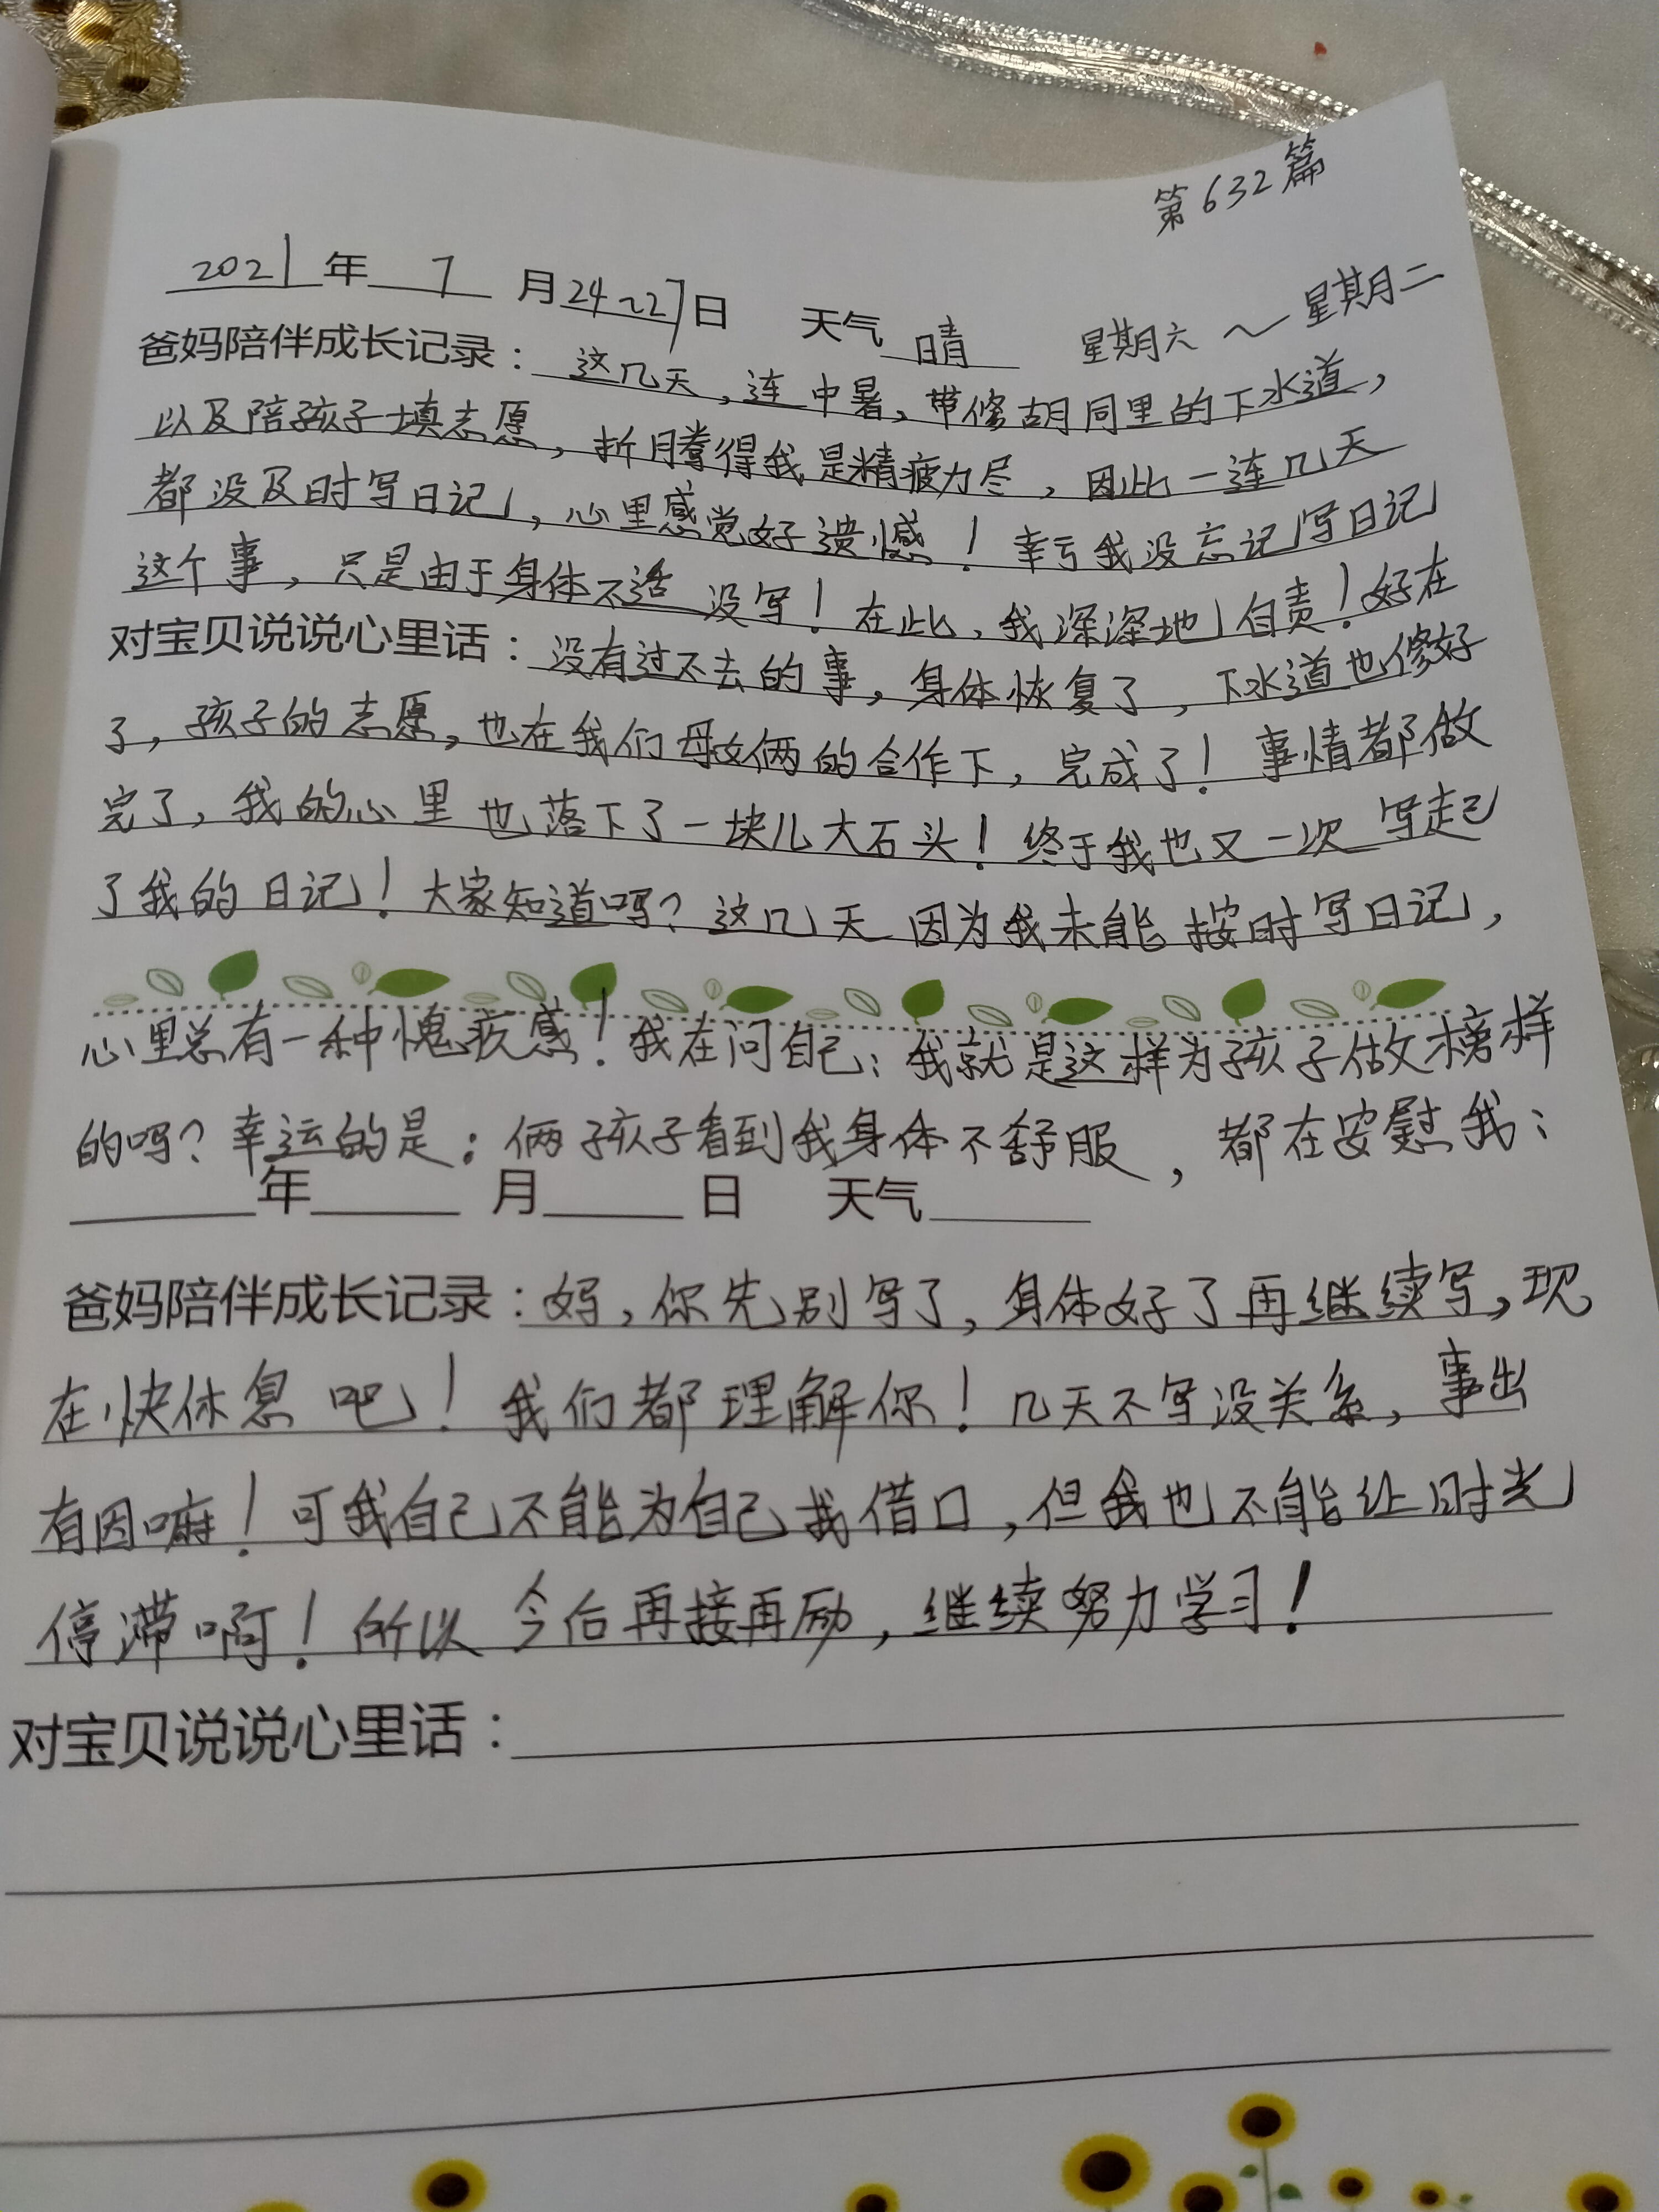 第632篇
2021年7月24~27日 天气晴 星期六~星期二
爸妈陪伴成长记录：这几天，连中暑，带修胡同里的下水道，
以及陪孩子填志愿，折腾得我是精疲力尽，因此一连几天
都没及时写日记，心里感觉好遗憾！幸亏我没忘记写日记
这个事，只是由于身体不适 没写！在此，我深深地自责！好在
对宝贝说说心里话：没有过不去的事，身体恢复了，下水道也修好
了，孩子的志愿，也在我们母女俩的合作下，完成了！事情都做
完了，我的心里也落下了一块儿大石头！终于我也又一次写起
了我的日记！大家知道吗？这几天因为我未能按时写日记，
心里总有一种愧疚感！我在问自己：我就是这样为孩子做榜样
的吗？幸运的是：俩孩子看到我身体不舒服，都在安慰我：
年 月 日 天气
爸妈陪伴成长记录：妈，你先别写了，身体好了再继续写，现
在快休息吧！我们都理解你！几天不写没关系，事出
有因嘛！可我自己不能为自己找借口，但我也不能让时光
停滞啊！所以今后再接再励，继续努力学习！
对宝贝说说心里话：